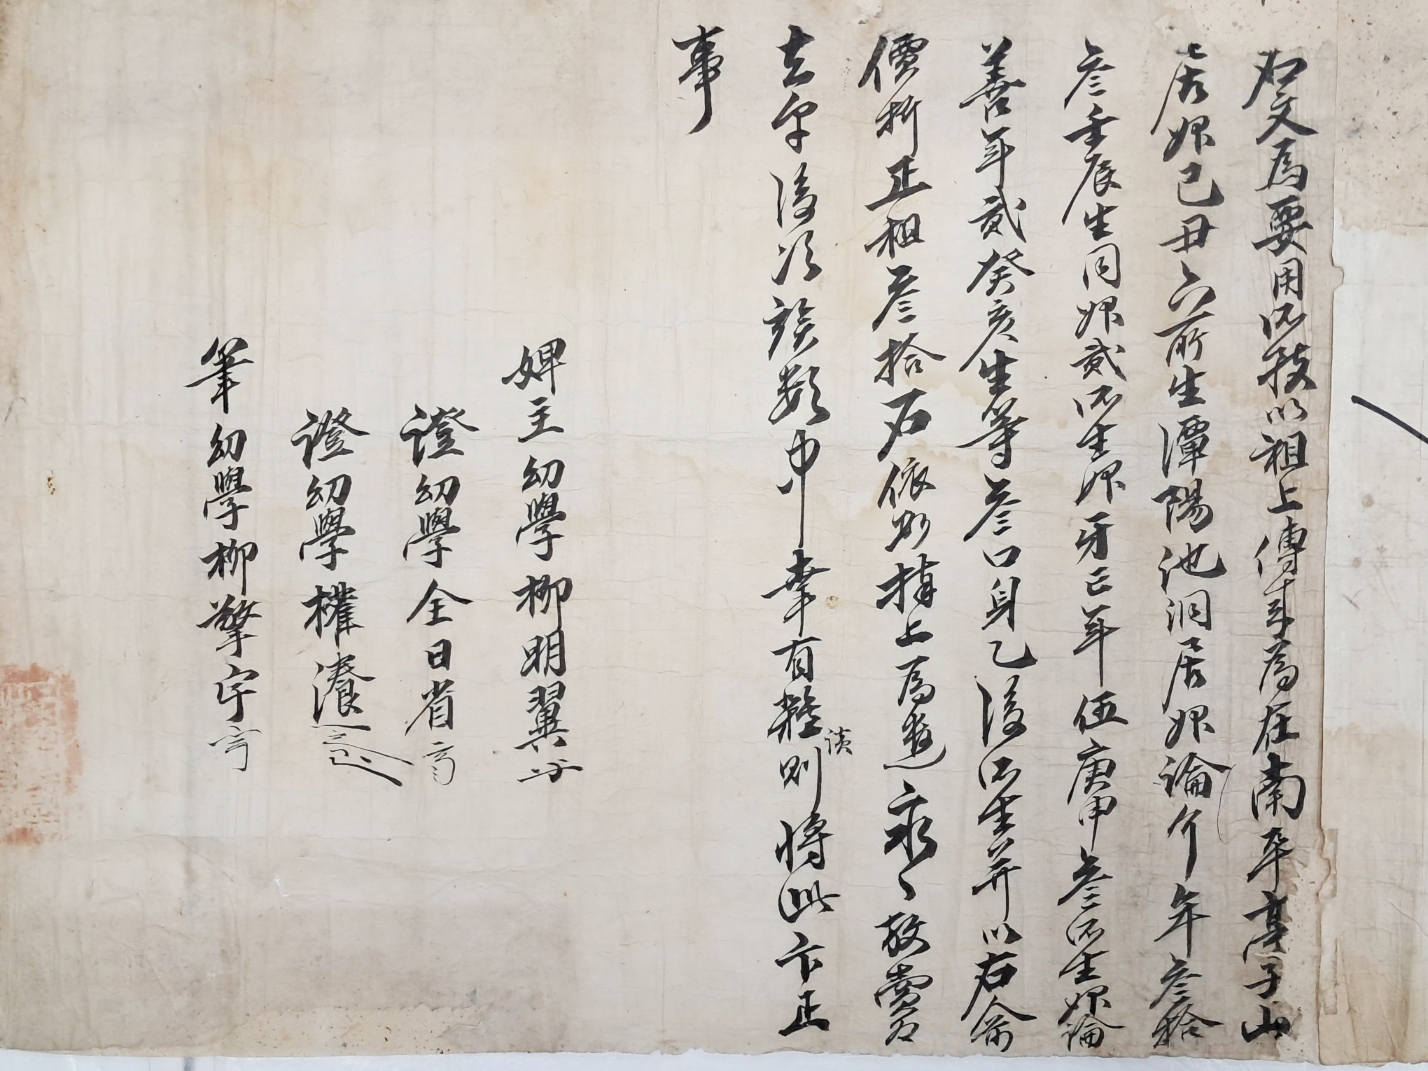 右文爲要用所致以祖上傳來爲在南平亭子山
居婢己丑六所生潭陽池洞居婢論介年叁拾
叁壬辰生同婢貳所生婢牙正年伍庚申叁所生婢論
善年貳癸亥生等叁口身乙後所生并以右人前
價折正租叁拾石依數捧上爲遣永永放賣爲
去乎後次族類中幸有雜談則將此卞正
事
婢主幼學柳明翼
證幼學全日省
證幼學權濩
筆幼學柳擎宇